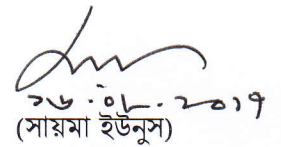 ১৬.০৮.২০১৭
(সায়মা ইউনুস)